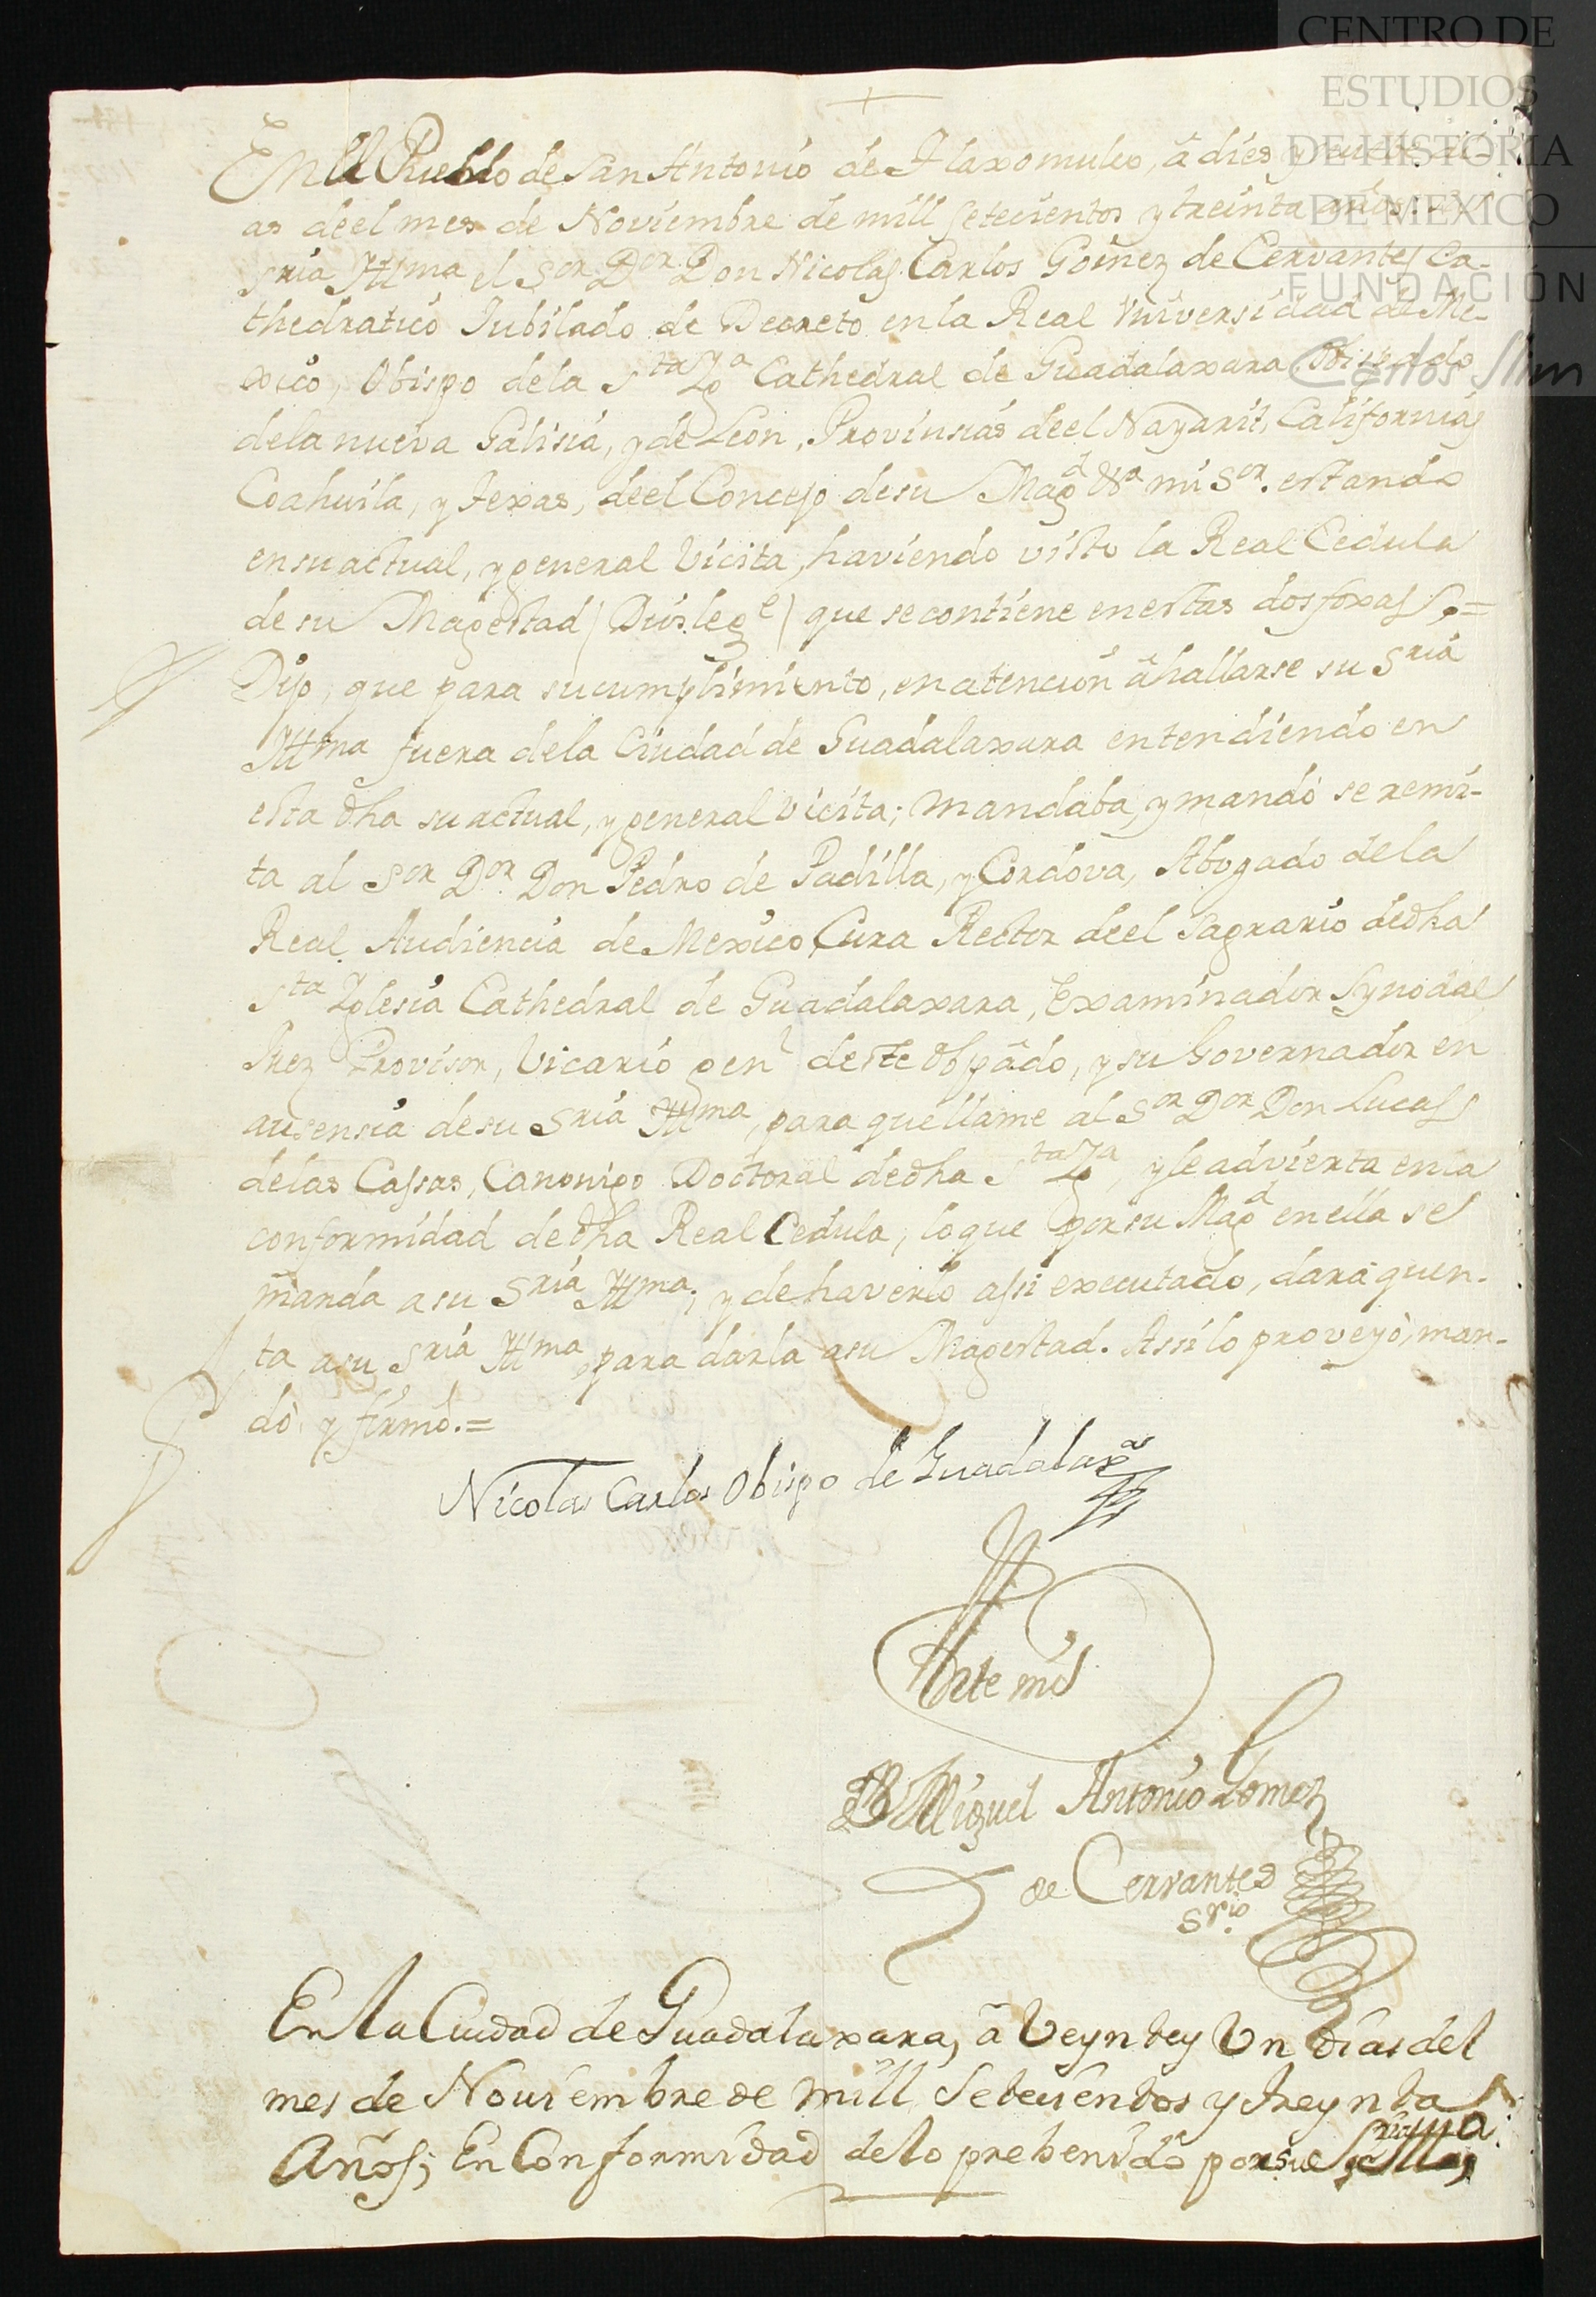 CENTRO DE
ESTUDIOS
DE HISTORIA
DE MEXICO
FUNDACIÓN
Carlos Slim
En el Pueblo de San Antonio de Tlaxomulco, â dies y nueve di-
as deel mes de Noviembre de mill setecientos y treinta años. Su
Sria Illma el Sor Dor Don Nicolas Carlos Gómez de Cervantes Ca-
thedratico Jubilado de Decreto en la Real Vniversidad de Me-
xico, Obispo dela Sta Yga Cathedral de Guadalaxara, Obispado
dela nueva Galisia, y de Leon, Provinsias deel Nayarit, Californias
Coahuila, y Texas, deel Concejo de su Magd &a mi Sor. estando
en su actual, y general Vicita, haviendo visto la Real Cedula
de su Magestad (Dios legе) que se contiene en estas dos foxas
Dijo, que para su cumplimiento, en atencion â hallarse su Sria
Illma fuera dela Ciudad de Guadalaxara entendiendo en
esta dha su actual, y general vicita; mandaba, y mandò se remi-
ta al Sor Dor Don Pedro de Padilla, y Cordova, Abogado dela
Real Audiencia de Mexico, Cura Rector deel Sagrario de dha
Sta Yglesia Cathedral de Guadalaxara, Examinador Synodal
Juez Provisor, Vicario genl deste Obpâdo, y su Governador en
ausensia de su Sria Illma, para que llame al Sor Dor Don Lucas
delas Cassas, Canonigo Doctoral de dha Sta Yga, y le advierta en la
conformidad de dha Real Cedula, lo que por su Magd en ella se
manda a su Sria Illma; y de haverlo assi executado, darà quen-
ta a su Sria Illma para darla a su Magestad. Assi lo proveyò, man-
dò, y firmò.=
Nicolas Carlos Obispo de Guadalaxa
Ante mi
Br Miguel Antonio Gomez
de Cervantes
Srio.
En la Ciudad de Guadalaxara, â Veynte y Vn dias del
mes de Nouiembre de mill Setecientos y treynta
Años; En Conformidad delo prebenido por su Sria Illma